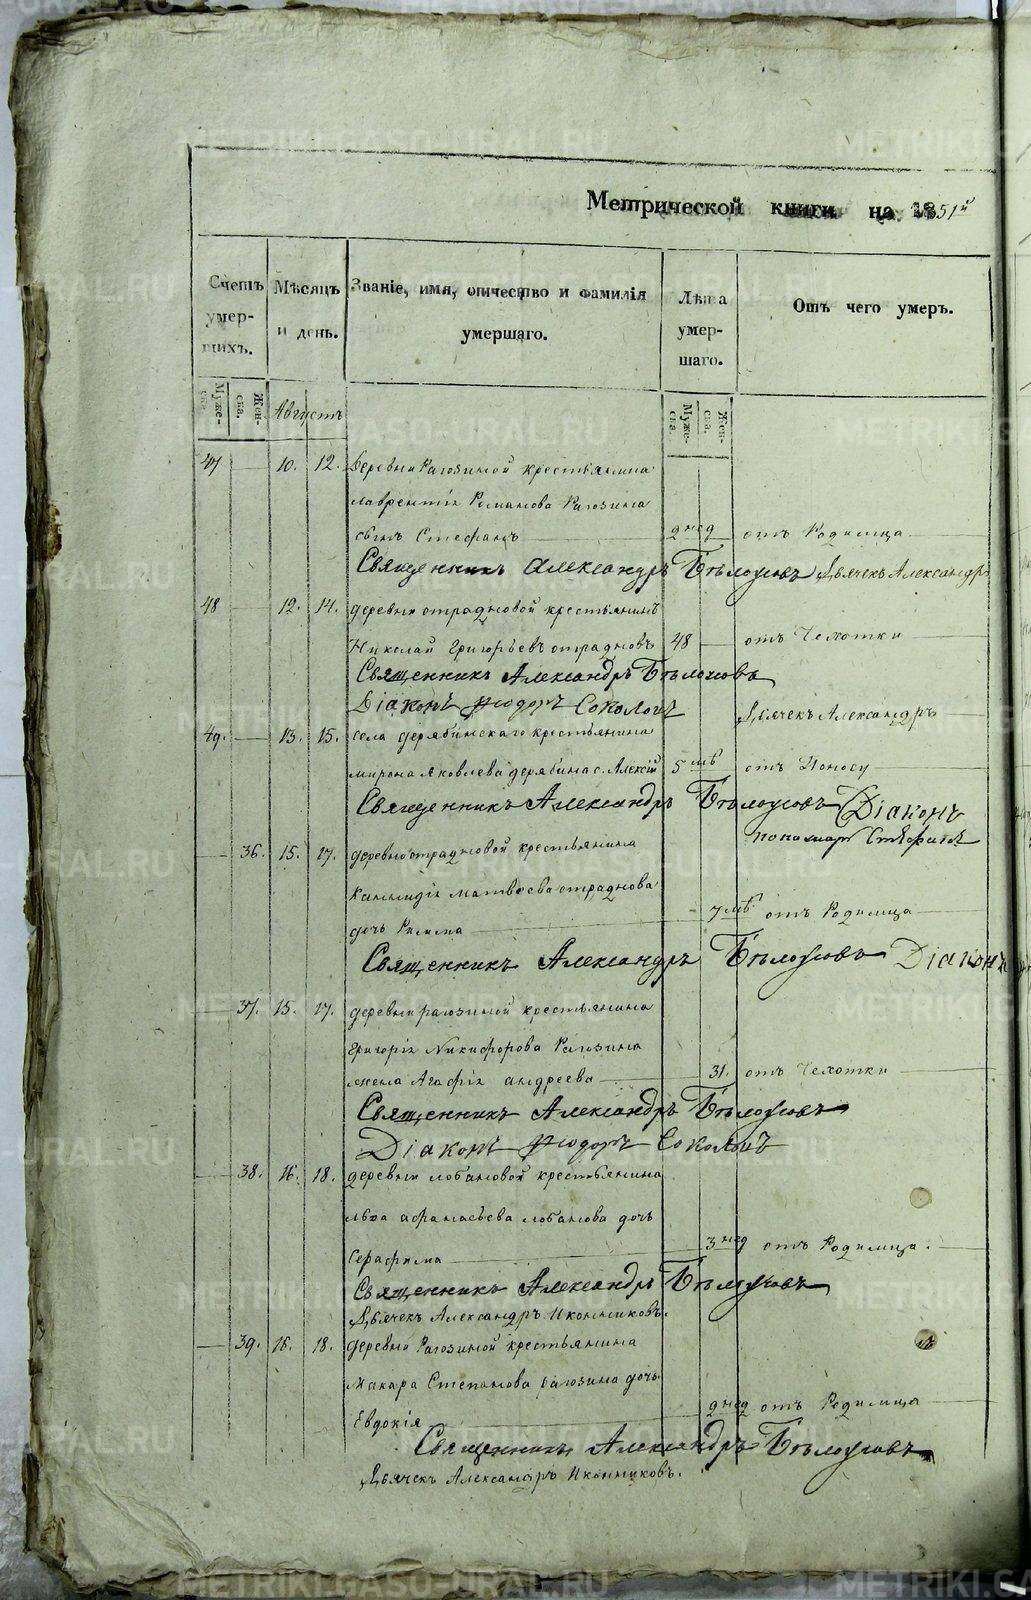 Метрической книги на 1851й
Счетъ умер- шихъ.
Мѣсяцъ и день.
Званіе, имя, отчество и фамилія умершаго.
Лѣта умер- шаго.
Отъ чего умеръ.
Муже- ска. Жен- ска. Августъ Муже- ска. Жен- ска.
47 10. 12. Деревни Рагозиной крестьянина
лаврентія Романова Рагозина
сынъ Стефанъ 2 нед отъ Родимца
Священникъ Александръ Бѣлоусовъ Дьячекъ Александръ
48 12. 14. деревни отрадновой крестьянинъ
Николай Григорьевъ отрадновъ 48 отъ Чехотки
Священникъ Александръ Бѣлоусовъ
Діаконъ Ѳеодоръ Соколовъ Дьячекъ Александръ
49. 13. 15. села дерябинскаго крестьянина
мирона яковлева дерябина с. Алексій 5 мѣ отъ Поносу
Священникъ Александръ Бѣлоусовъ Діаконъ
пономарь Стефанъ
36. 15. 17. деревни отрадновой крестьянина
матвѣева отраднова
дочь Римма 7 мѣ. отъ Родимца
Священникъ Александръ Бѣлоусовъ Діаконъ
37. 15. 17. деревни рагозиной крестьянина
Григорія Никифорова Рагозина
жена Агафія андреева 31. отъ Чехотки
Священникъ Александръ Бѣлоусовъ
Діаконъ Ѳеодоръ Соколовъ
38. 16. 18. деревни лобановой крестьянина
льва афанасьева лобанова дочь
Серафима 3 нед отъ Родимца.
Священникъ Александръ Бѣлоусовъ
Дьячекъ Александръ Иконниковъ.
39. 16. 18. деревни Рагозиной крестьянина
Макара Степанова рагозина дочь
Евдокія 2 нед отъ Родимца
Священникъ Александръ Бѣлоусовъ
Дьячекъ Александръ Иконниковъ.
METRIKI.GASO-URAL.RU